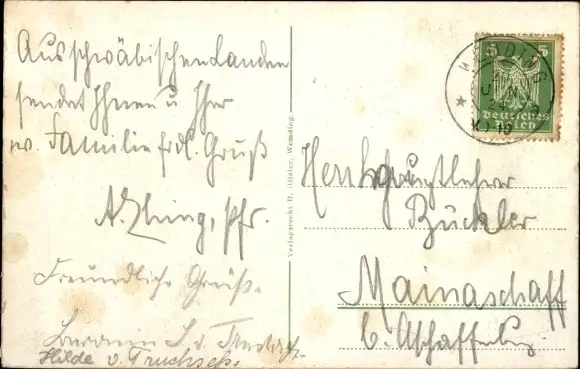 Aus schwäbischen Landen
sendet Ihnen u Ihrer
w. Familie frdl. Gruß
Pfr.
Freundliche Grüße.
Hilde v. Truchseß.
Verlagsrecht Wemding.
5 5
Deutsches
Reich
Herrn Hauptlehrer
Bückler
Mainaschaff
b. Aschaffenburg